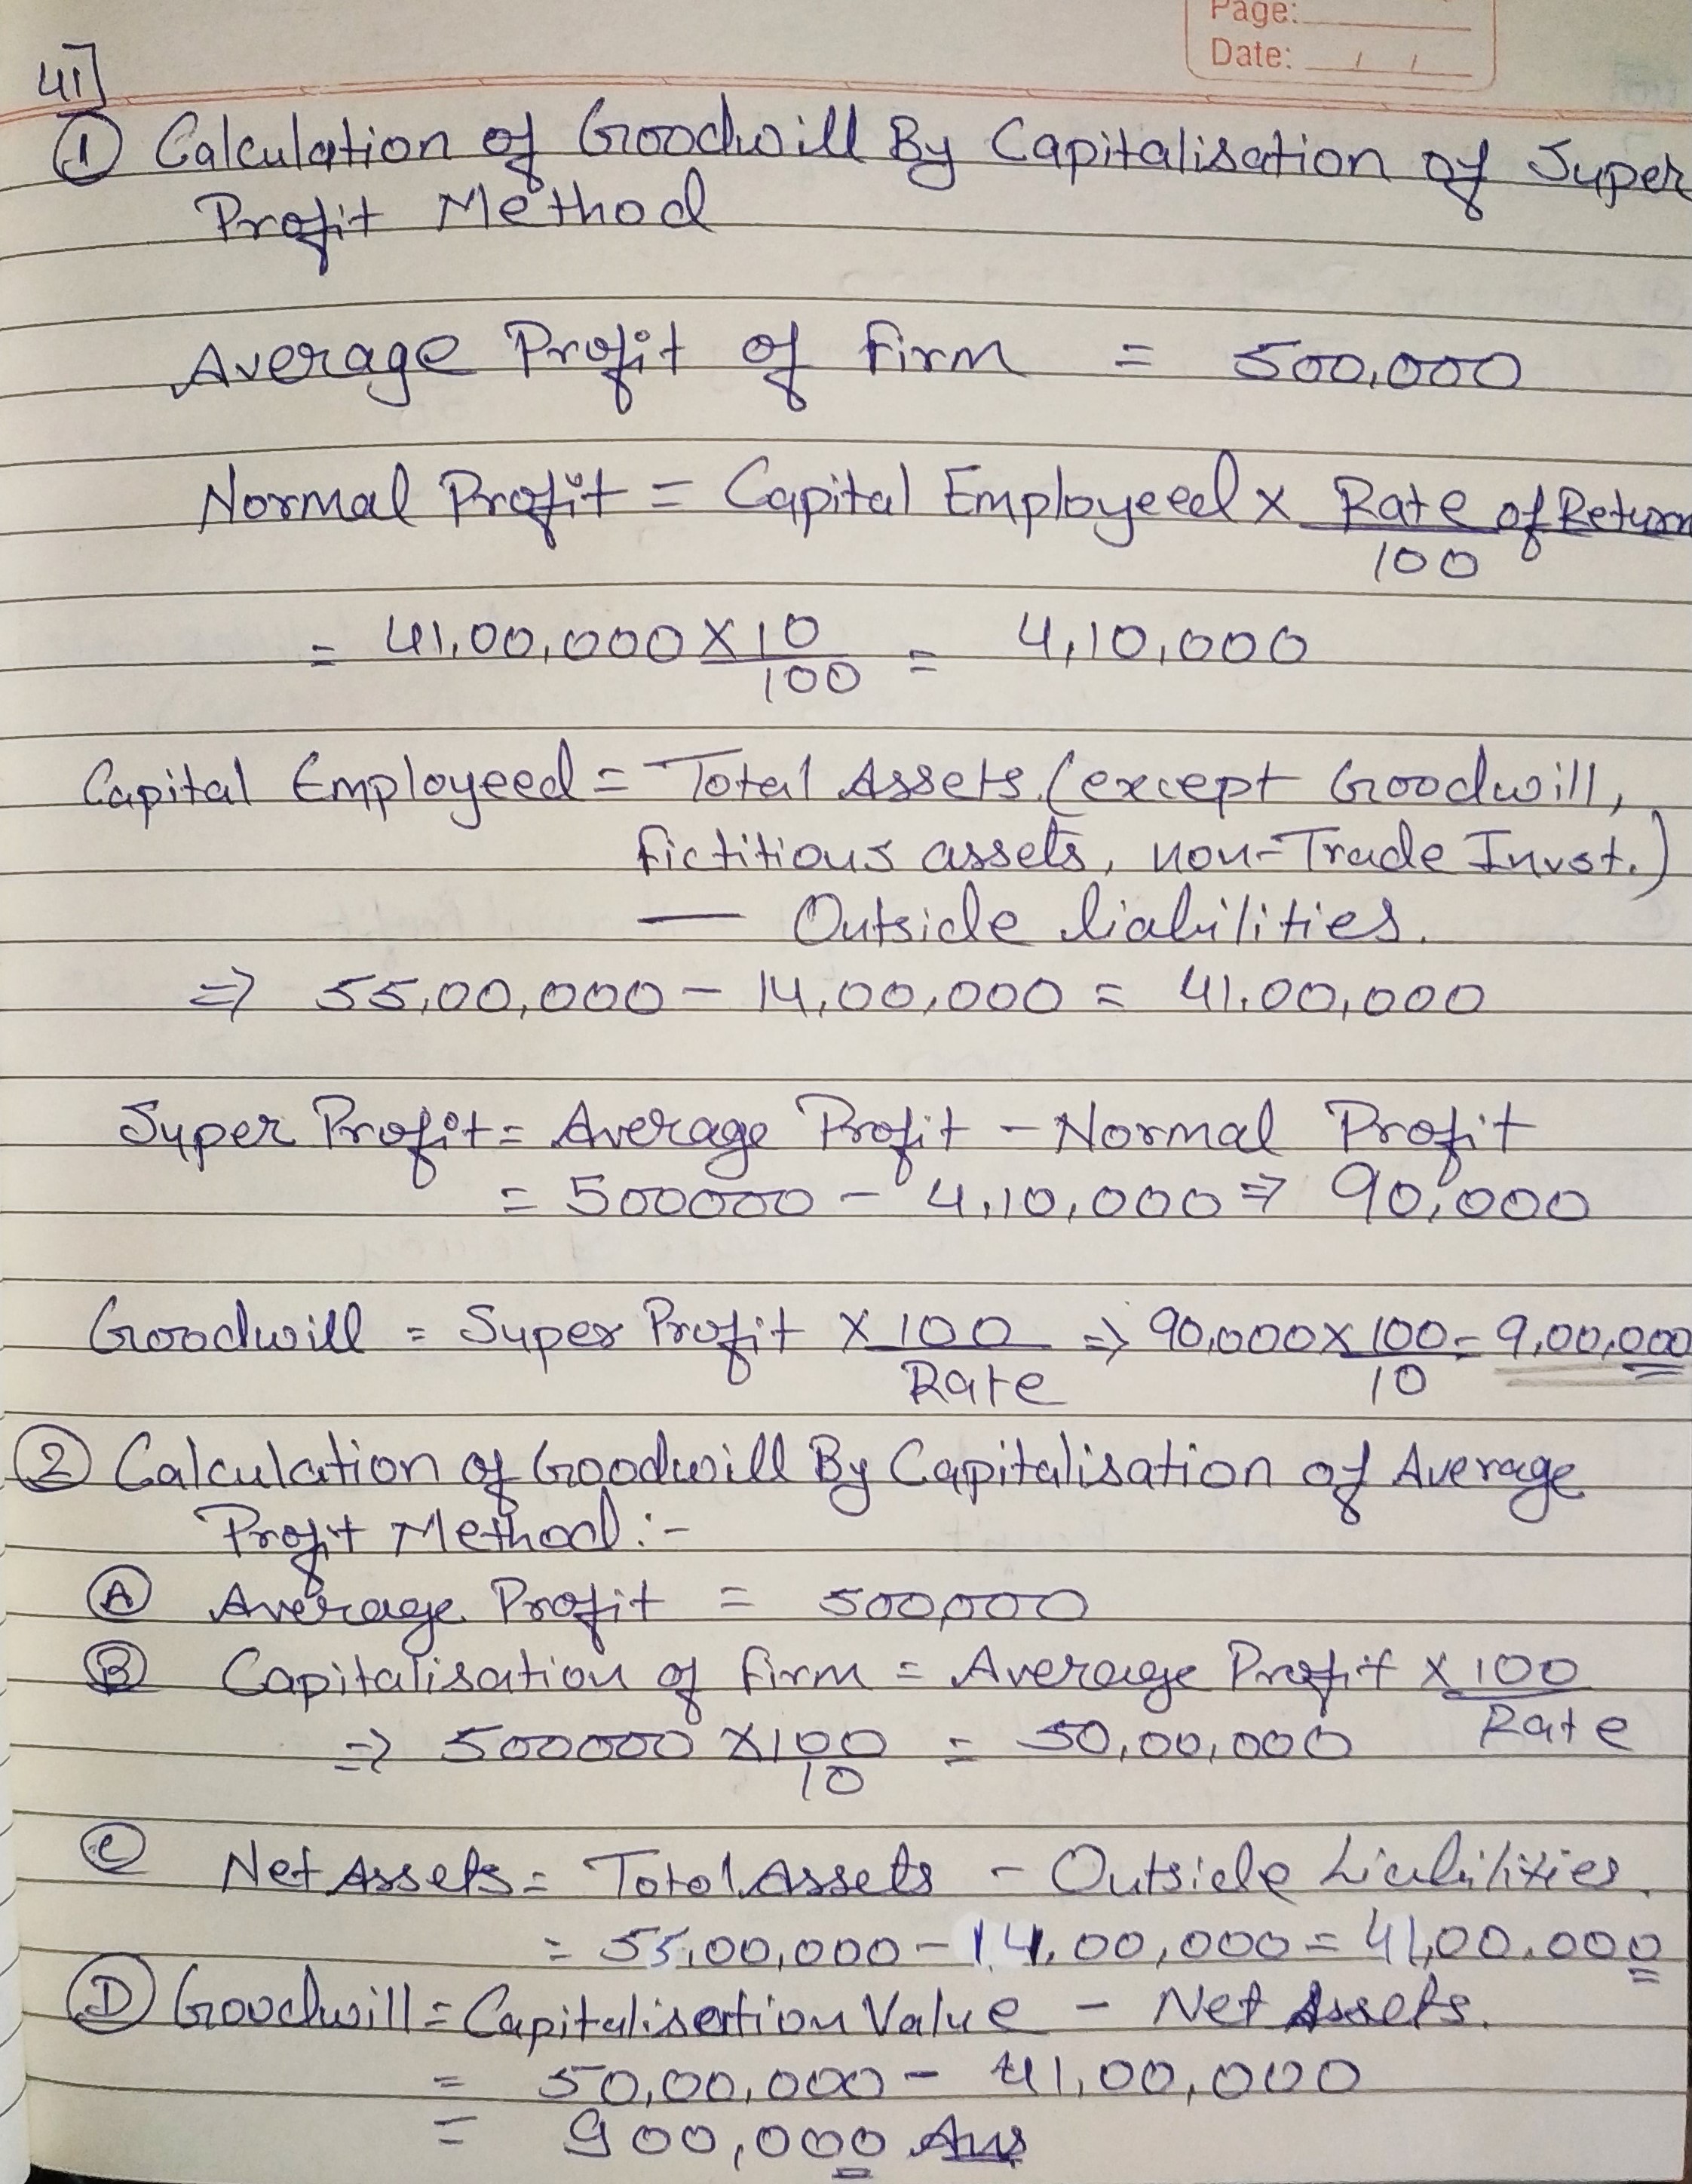 Page:
Date: / /
41]
① Calculation of Goodwill By Capitalisation of Super
Profit Method
Average Profit of firm = 500,000
Normal Profit = Capital Employeed × Rate of Return
100
= 41,00,000 × 10 = 4,10,000
100
Capital Employeed = Total Assets (except Goodwill,
fictitious assets, non-Trade Invst.)
— Outside liabilities.
⇒ 55,00,000 - 14,00,000 = 41,00,000
Super Profit = Average Profit - Normal Profit
= 500000 - 4,10,000 ⇒ 90,000
Goodwill = Super Profit × 100 ⇒ 90,000 × 100 = 9,00,000
Rate 10
② Calculation of Goodwill By Capitalisation of Average
Profit Method :-
Ⓐ Average Profit = 500,000
Ⓑ Capitalisation of firm = Average Profit × 100
Rate
⇒ 500000 × 100 = 50,00,000
10
Ⓒ Net Assets = Total Assets - Outside Liabilities.
= 55,00,000 - 14,00,000 = 41,00,000
Ⓓ Goodwill = Capitalisation Value - Net Assets.
= 50,00,000 - 41,00,000
= 900,000 Ans